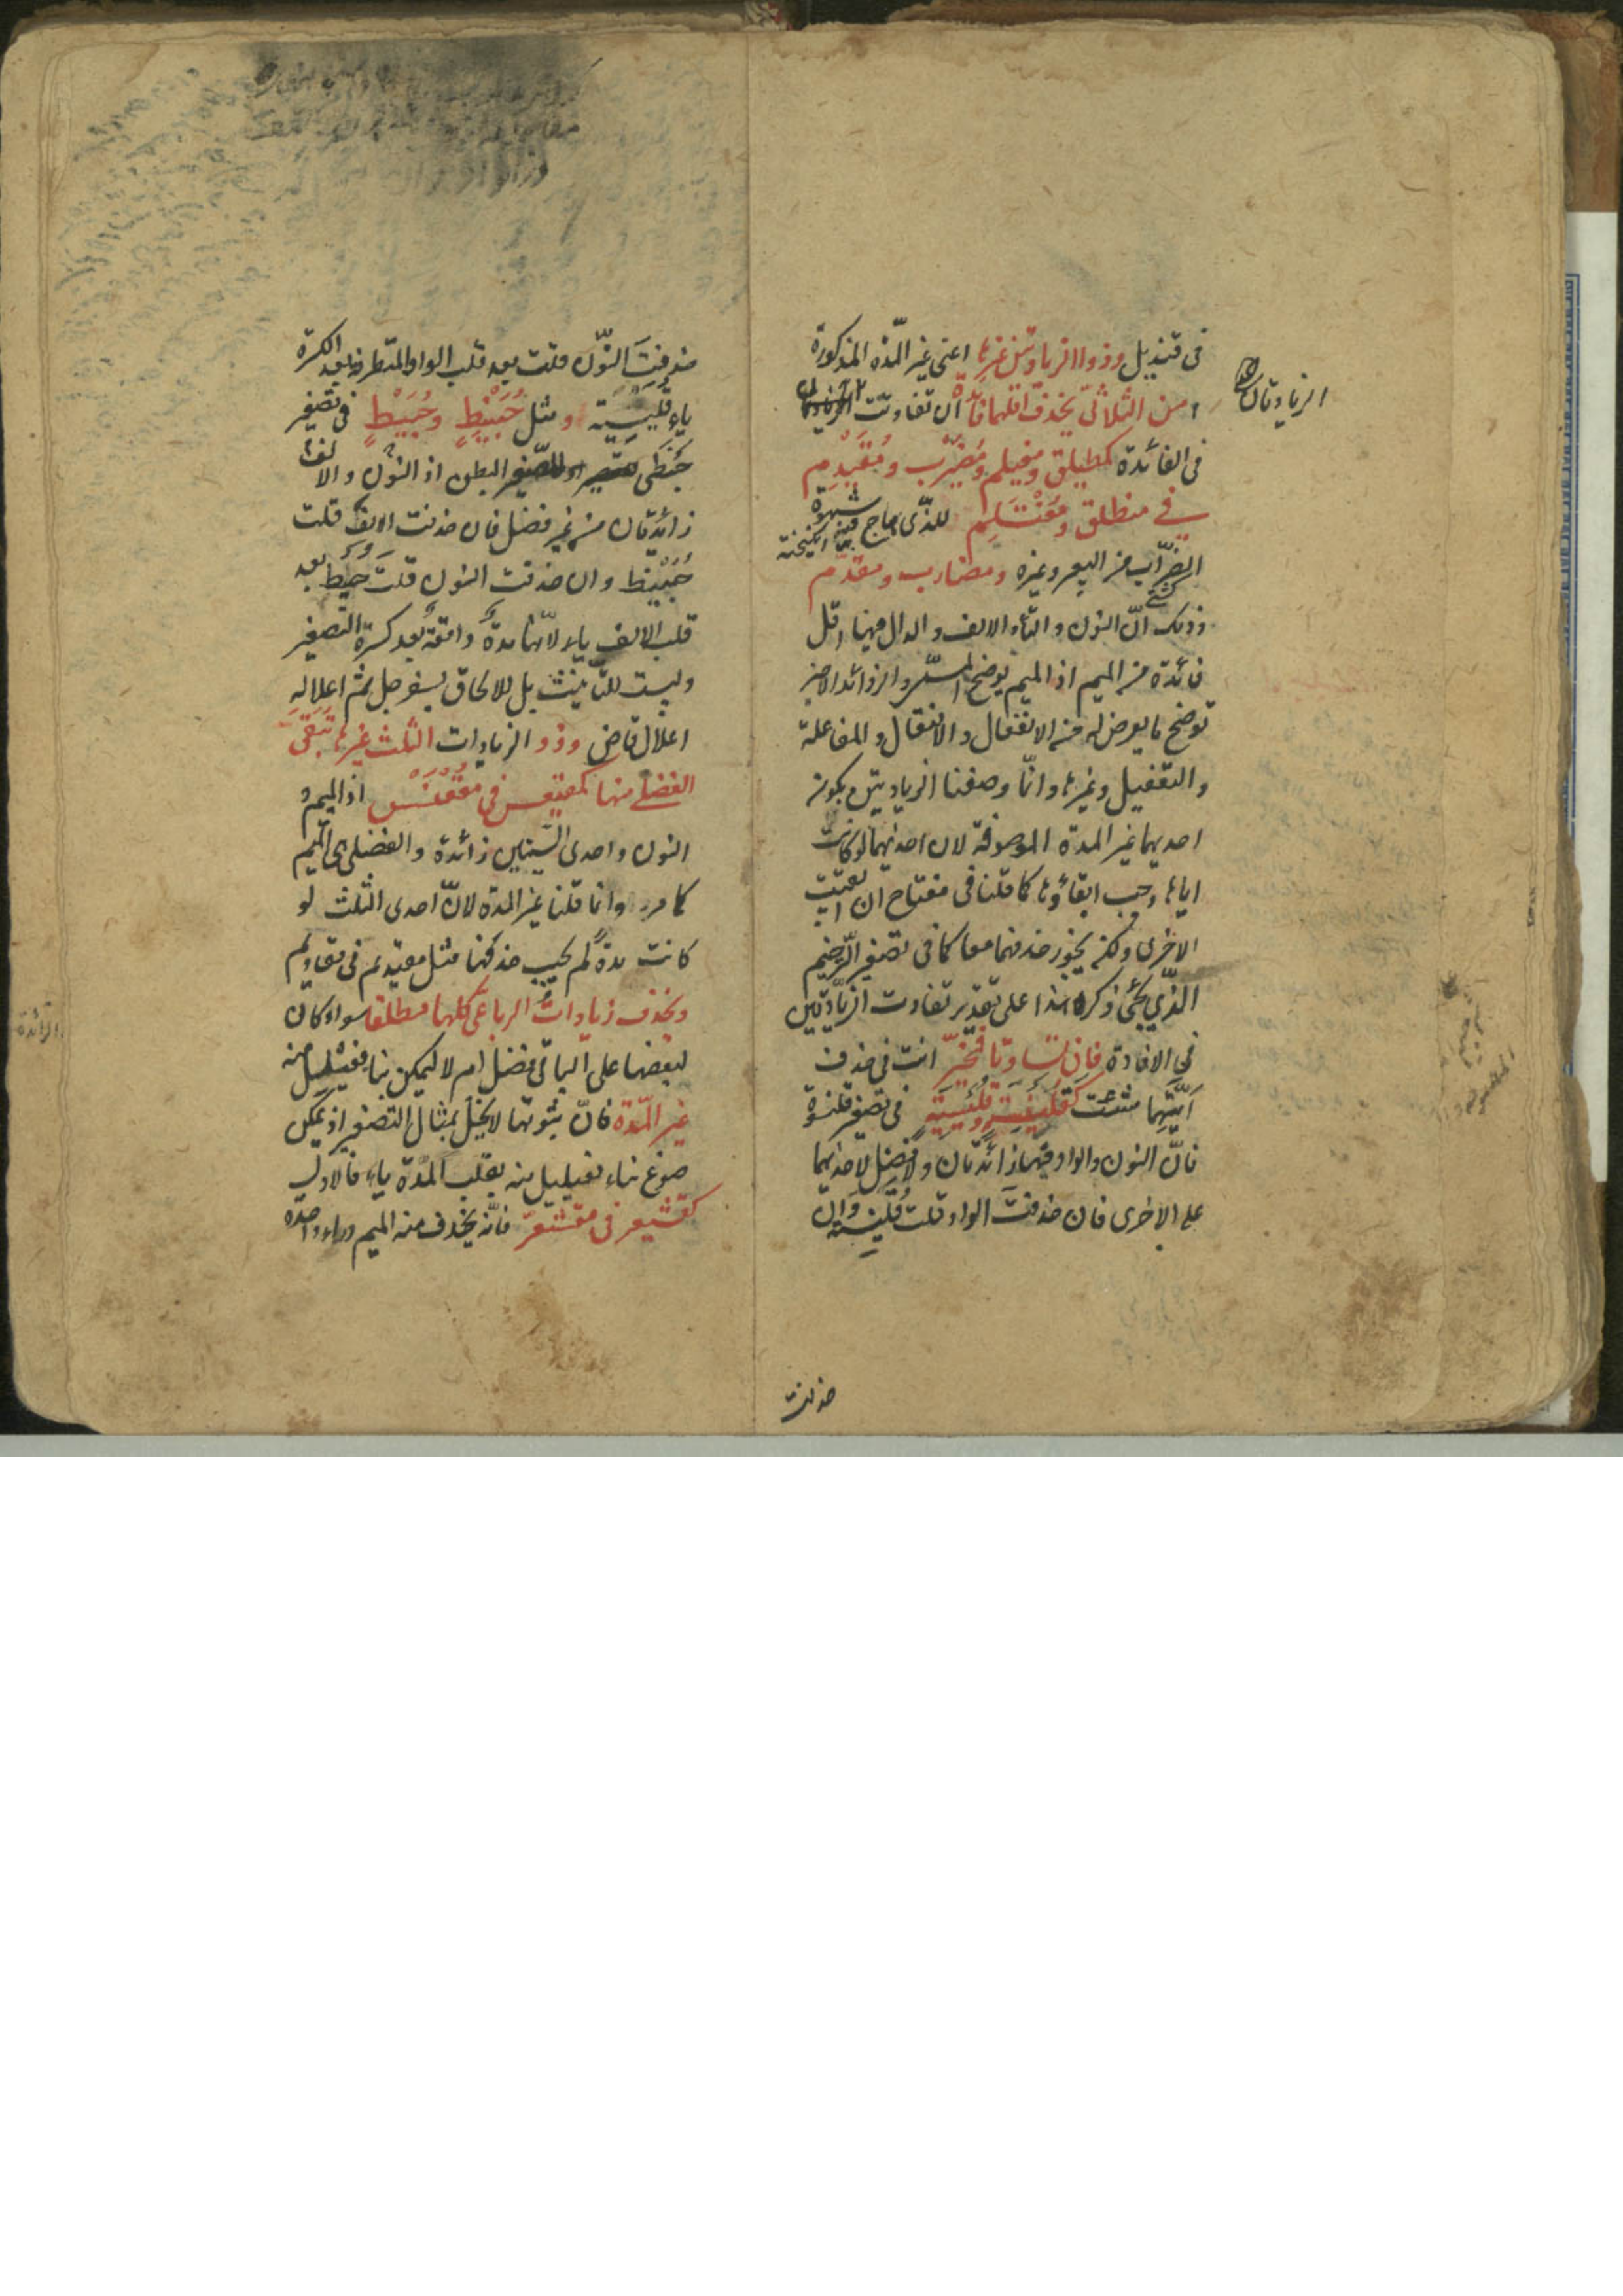 فى قنديل وذو الزيادتين غيرها اعنى غير المدّة المذكورة
من الثلاثىّ يحذف اقلهما فائدة ان تفاوتت
الزيادتان
فى الفائدة كمطيلق ومغيلم ومضيرب ومقيدم
فى منطلق ومغتلم للذى هاج شهوة
الضراب من البعير وغيره ومضارب ومقدّم
وذلك انّ النون والتاء والالف والدال فيها اقل
فائدة من الميم اذ الميم يوضح المسمّى والزوائد الاخر
توضح ما يعرض له من الانفعال والافتعال والمفاعلة
والتفعيل وغيرها وانّما وصفنا الزيادتين بكون
احديهما غير المدة الموصوفة لان احديهما لو كانت
اياها وجب ابقاؤها كما قلنا فى مفتاح ان
الاخرى ولكن يجوز حذفهما معا كما فى تصغير الترخيم
الذى يجئ ذكره هذا على تقدير تفاوت الزيادتين
فى الافادة فان تساوتا فمخيّر انت فى حذف
ايّتهما شئت كقلينسة وقليسية فى تصغير قلنسوة
فانّ النون والواو فيها زائدتان ولا فضل لاحديهما
على الاخرى فان حذفت الواو قلت قلينسة وان
حذفت
حذفت النّون قلت بعد قلب الواو المتطرفة بعد الكسرة
ياء قليسية ومثل حبينط وحبيط فى تصغير
حبنطى البطن اذ النون والالف
زائدتان من غير فضل فان حذفت الالف قلت
حبينط وان حذفت النون قلت حبيط بعد
قلب الالف ياء لانّها مدة واقعة بعد كسرة التصغير
وليست للتأنيث بل للالحاق بسفرجل ثم اعلاله
اعلال قاض وذو الزيادات الثلث غيرها تبقى
الفضلى منها كمقيعس فى مقعنسس اذ الميم و
النون واحدى السينين زائدة والفضلى هى الميم
كما مر وانما قلنا غير المدة لانّ احدى الثلث لو
كانت مدة لم يجب حذفها مثل مقيديم فى مقاديم
وتحذف زيادات الرباعى كلها مطلقا سواء كان
لبعضها على الباقى فضل ام لا ليمكن بناء فعيلل منه
غير المدّة فانّ ثبوتها لا يخل بمثال التصغير اذ يمكن
صوغ بناء فعيليل منه بقلب المدة ياء فالاول
كقشيعر فى مقشعر فانّه يحذف منه الميم وراء واحدة
الزائدة